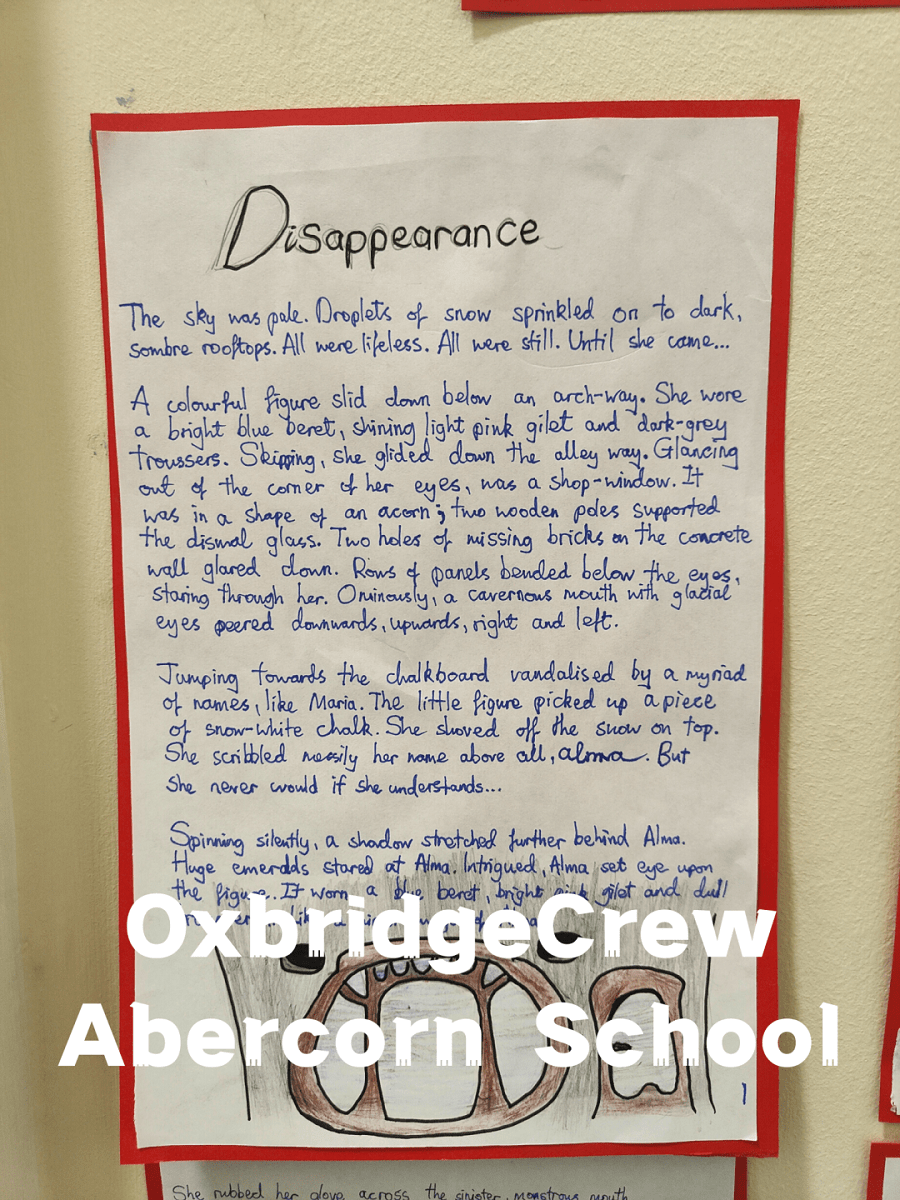 Disappearance
The sky was pale. Droplets of snow sprinkled on to dark,
sombre rooftops. All were lifeless. All were still. Until she came...
A colourful figure slid down below an arch-way. She wore
a bright blue beret, shining light pink gilet and dark-grey
troussers. Skipping, she glided down the alley way. Glancing
out of the corner of her eyes, was a shop-window. It
was in a shape of an acorn; two wooden poles supported
the dismal glass. Two holes of missing bricks on the concrete
wall glared down. Rows of panels bended below the eyes,
staring through her. Ominously, a cavernous mouth with glacial
eyes peered downwards, upwards, right and left.
Jumping towards the chalkboard vandalised by a myriad
of names, like Maria. The little figure picked up a piece
of snow-white chalk. She shoved off the snow on top.
She scribbled messily her name above all, alma. But
she never would if she understands...
Spinning silently, a shadow stretched further behind Alma.
Huge emeralds stared at Alma. Intrigued, Alma set eye upon
the figure. It worn a blue beret, bright pink gilet and dull
OxbridgeCrew
Abercorn School
1
She rubbed her glove across the sinister, monstrous mouth